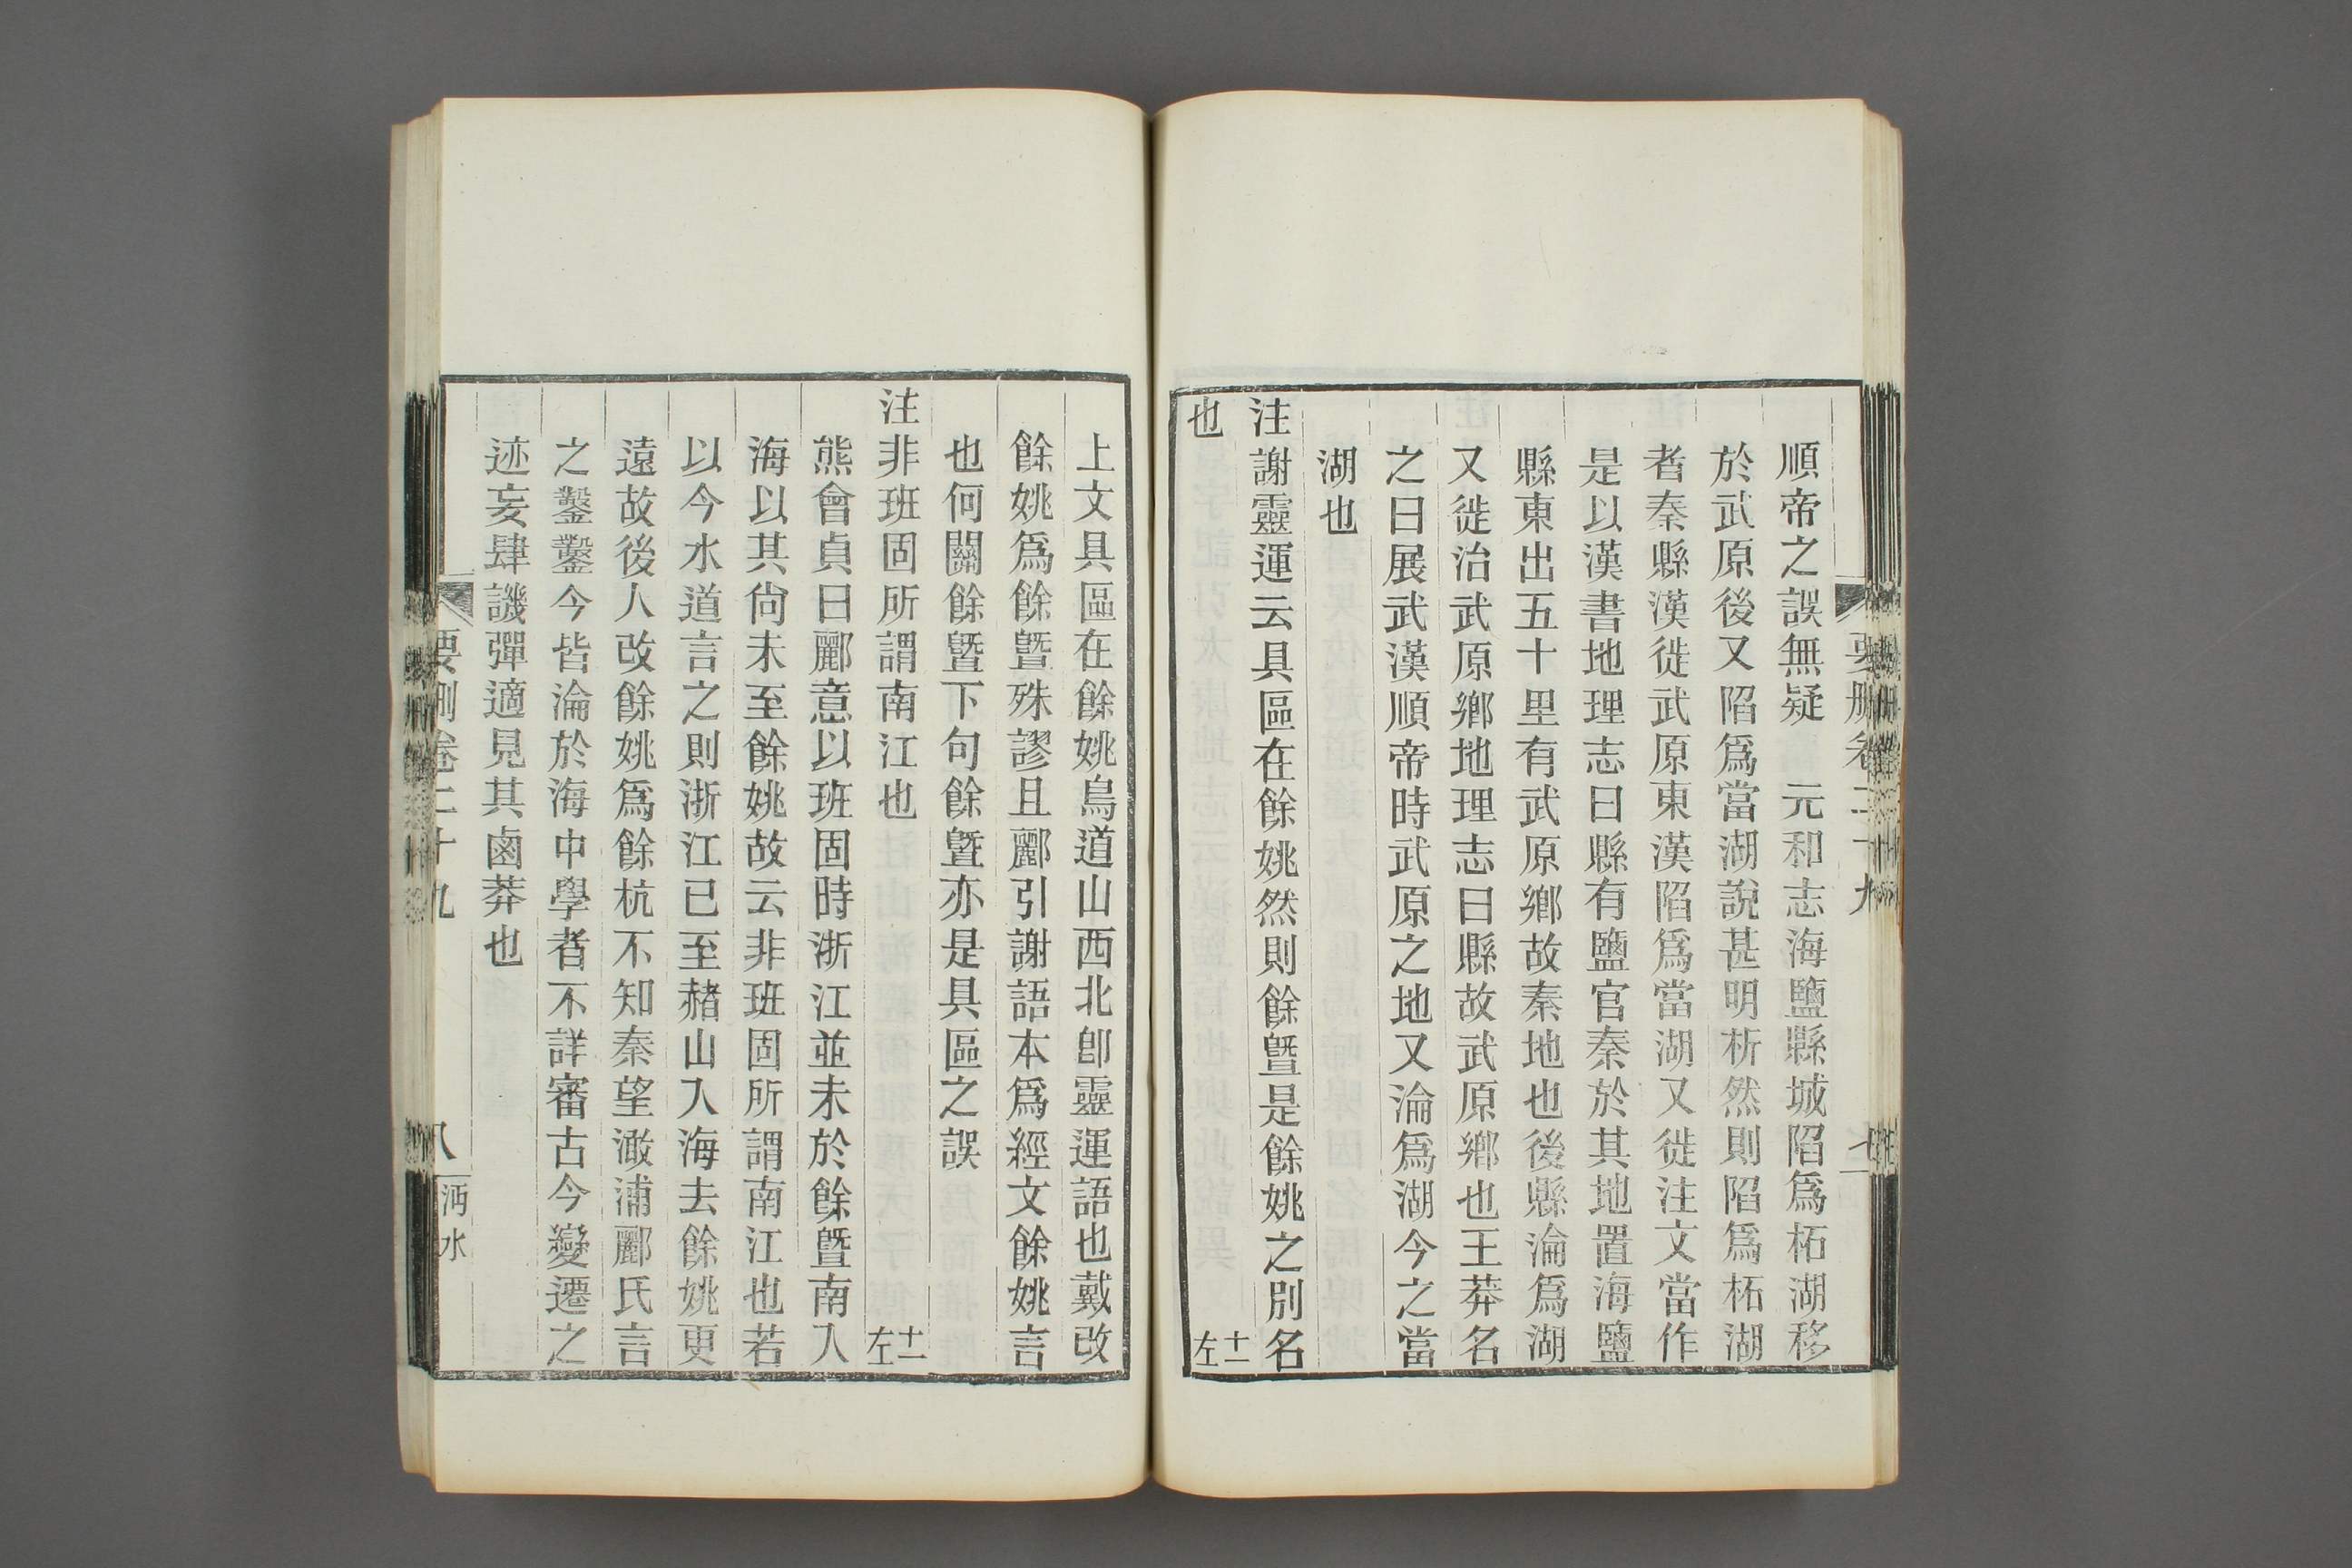 順帝之誤無疑　元和志海鹽縣城陷爲柘湖移
於武原後又陷爲當湖說甚明析然則陷爲柘湖
者秦縣漢徙武原東漢陷爲當湖又徙注文當作
是以漢書地理志曰縣有鹽官秦於其地置海鹽
縣東出五十里有武原鄉故秦地也後縣淪爲湖
又徙治武原鄉地理志曰縣故武原鄉也王莽名
之曰展武漢順帝時武原之地又淪爲湖今之當
湖也
注謝靈運云具區在餘姚然則餘曁是餘姚之別名
也 十一左
上文具區在餘姚烏道山西北卽靈運語也戴改
餘姚爲餘曁殊謬且酈引謝語本爲經文餘姚言
也何關餘曁下句餘曁亦是具區之誤
注非班固所謂南江也 十一左
熊會貞曰酈意以班固時浙江並未於餘曁南入
海以其尙未至餘姚故云非班固所謂南江也若
以今水道言之則浙江已至赭山入海去餘姚更
遠故後人改餘姚爲餘杭不知秦望澉浦酈氏言
之鑿鑿今皆淪於海中學者不詳審古今變遷之
迹妄肆譏彈適見其鹵莽也
要刪卷二十九　八　沔水